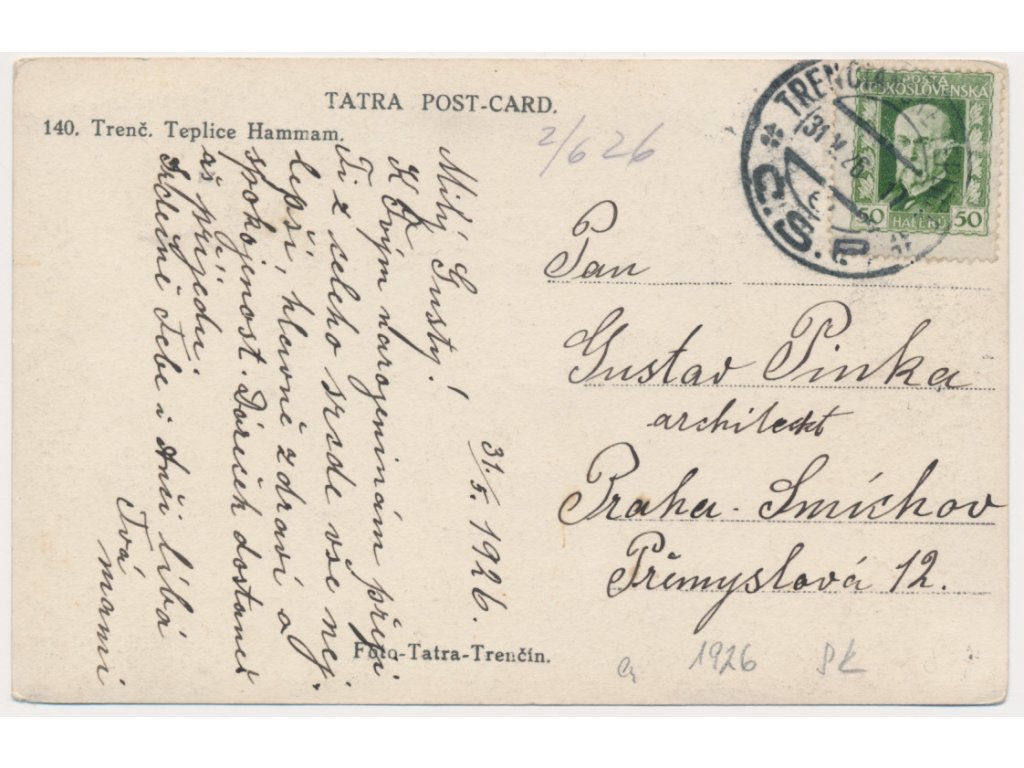 TATRA POST-CARD.
140. Trenč. Teplice Hammam.
2/6 26
TRENČIA
31 V 26 17
Č.S.P.
POŠTA
ČESKOSLOVENSKÁ
50 HALÉŘŮ 50
31./5. 1926.
Milý Gusty!
K Tvým narozeninám přeji
Ti z celeho srdce vse nej
lepší, hlavně zdraví a
spokojenost. Dáreček dostaneš
až přijedu.
Srdečně Tebe i Anči líbá
Tvá
mami
Pan
Gustav Pinka
architeckt
Praha - Smíchov
Přemyslová 12.
Foto-Tatra-Trenčín.
1926